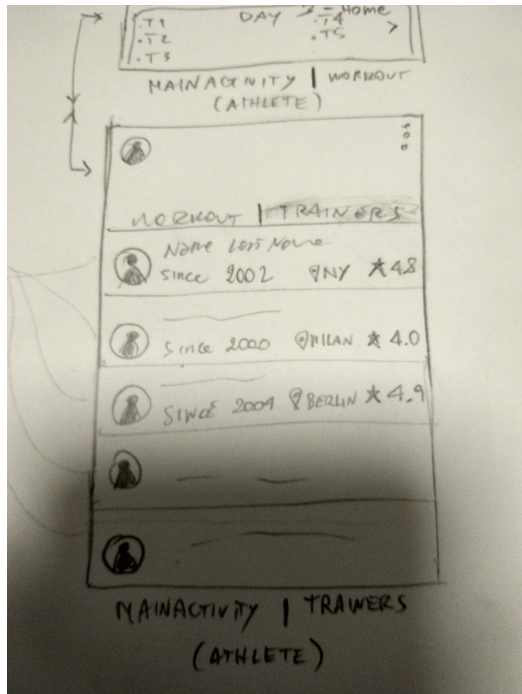 DAY 3 - Home
.T1
.T2
.T3
.T4
.T5
>
MAINACTIVITY | WORKOUT
(ATHLETE)
WORKOUT | TRAINERS
Name Last Name
Since 2002 NY ★ 4.8
Since 2000 MILAN ★ 4.0
SINCE 2004 BERLIN ★ 4.9
MAINACTIVITY | TRAINERS
(ATHLETE)